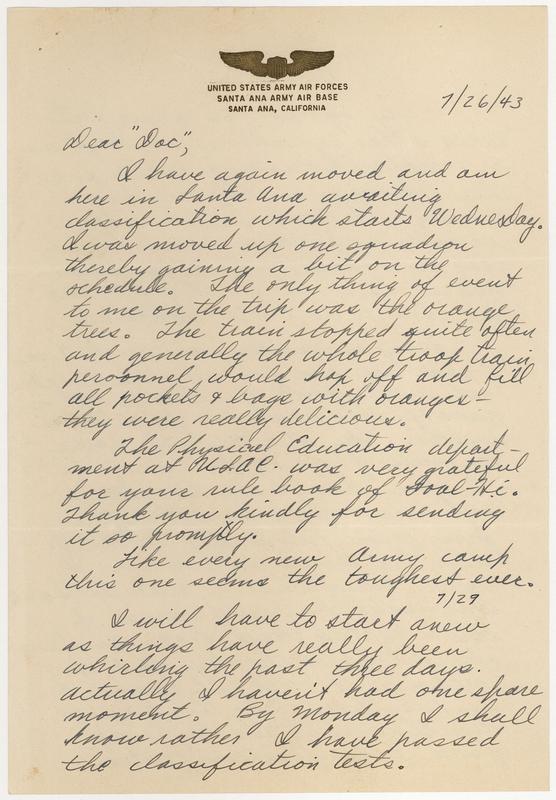 UNITED STATES ARMY AIR FORCES
SANTA ANA ARMY AIR BASE
SANTA ANA, CALIFORNIA
7/26/43
Dear "Doc",
I have again moved and am
here in Santa Ana awaiting
classification which starts Wednesday.
I was moved up one squadron
thereby gaining a bit on the
schedule. The only thing of event
to me on the trip was the orange
trees. The train stopped quite often
and generally the whole troop train
personnel would hop off and fill
all pockets & bags with oranges -
they were really delicious.
The Physical Education depart-
ment at was very grateful
for your rule book of Goal-Hi.
Thank you kindly for sending
it so promptly.
Like every new Army camp
this one seems the toughest ever.
7/29
I will have to start anew
as things have really been
whirling the past three days.
Actually I haven't had one spare
moment. By Monday I shall
know rather I have passed
the classification tests.